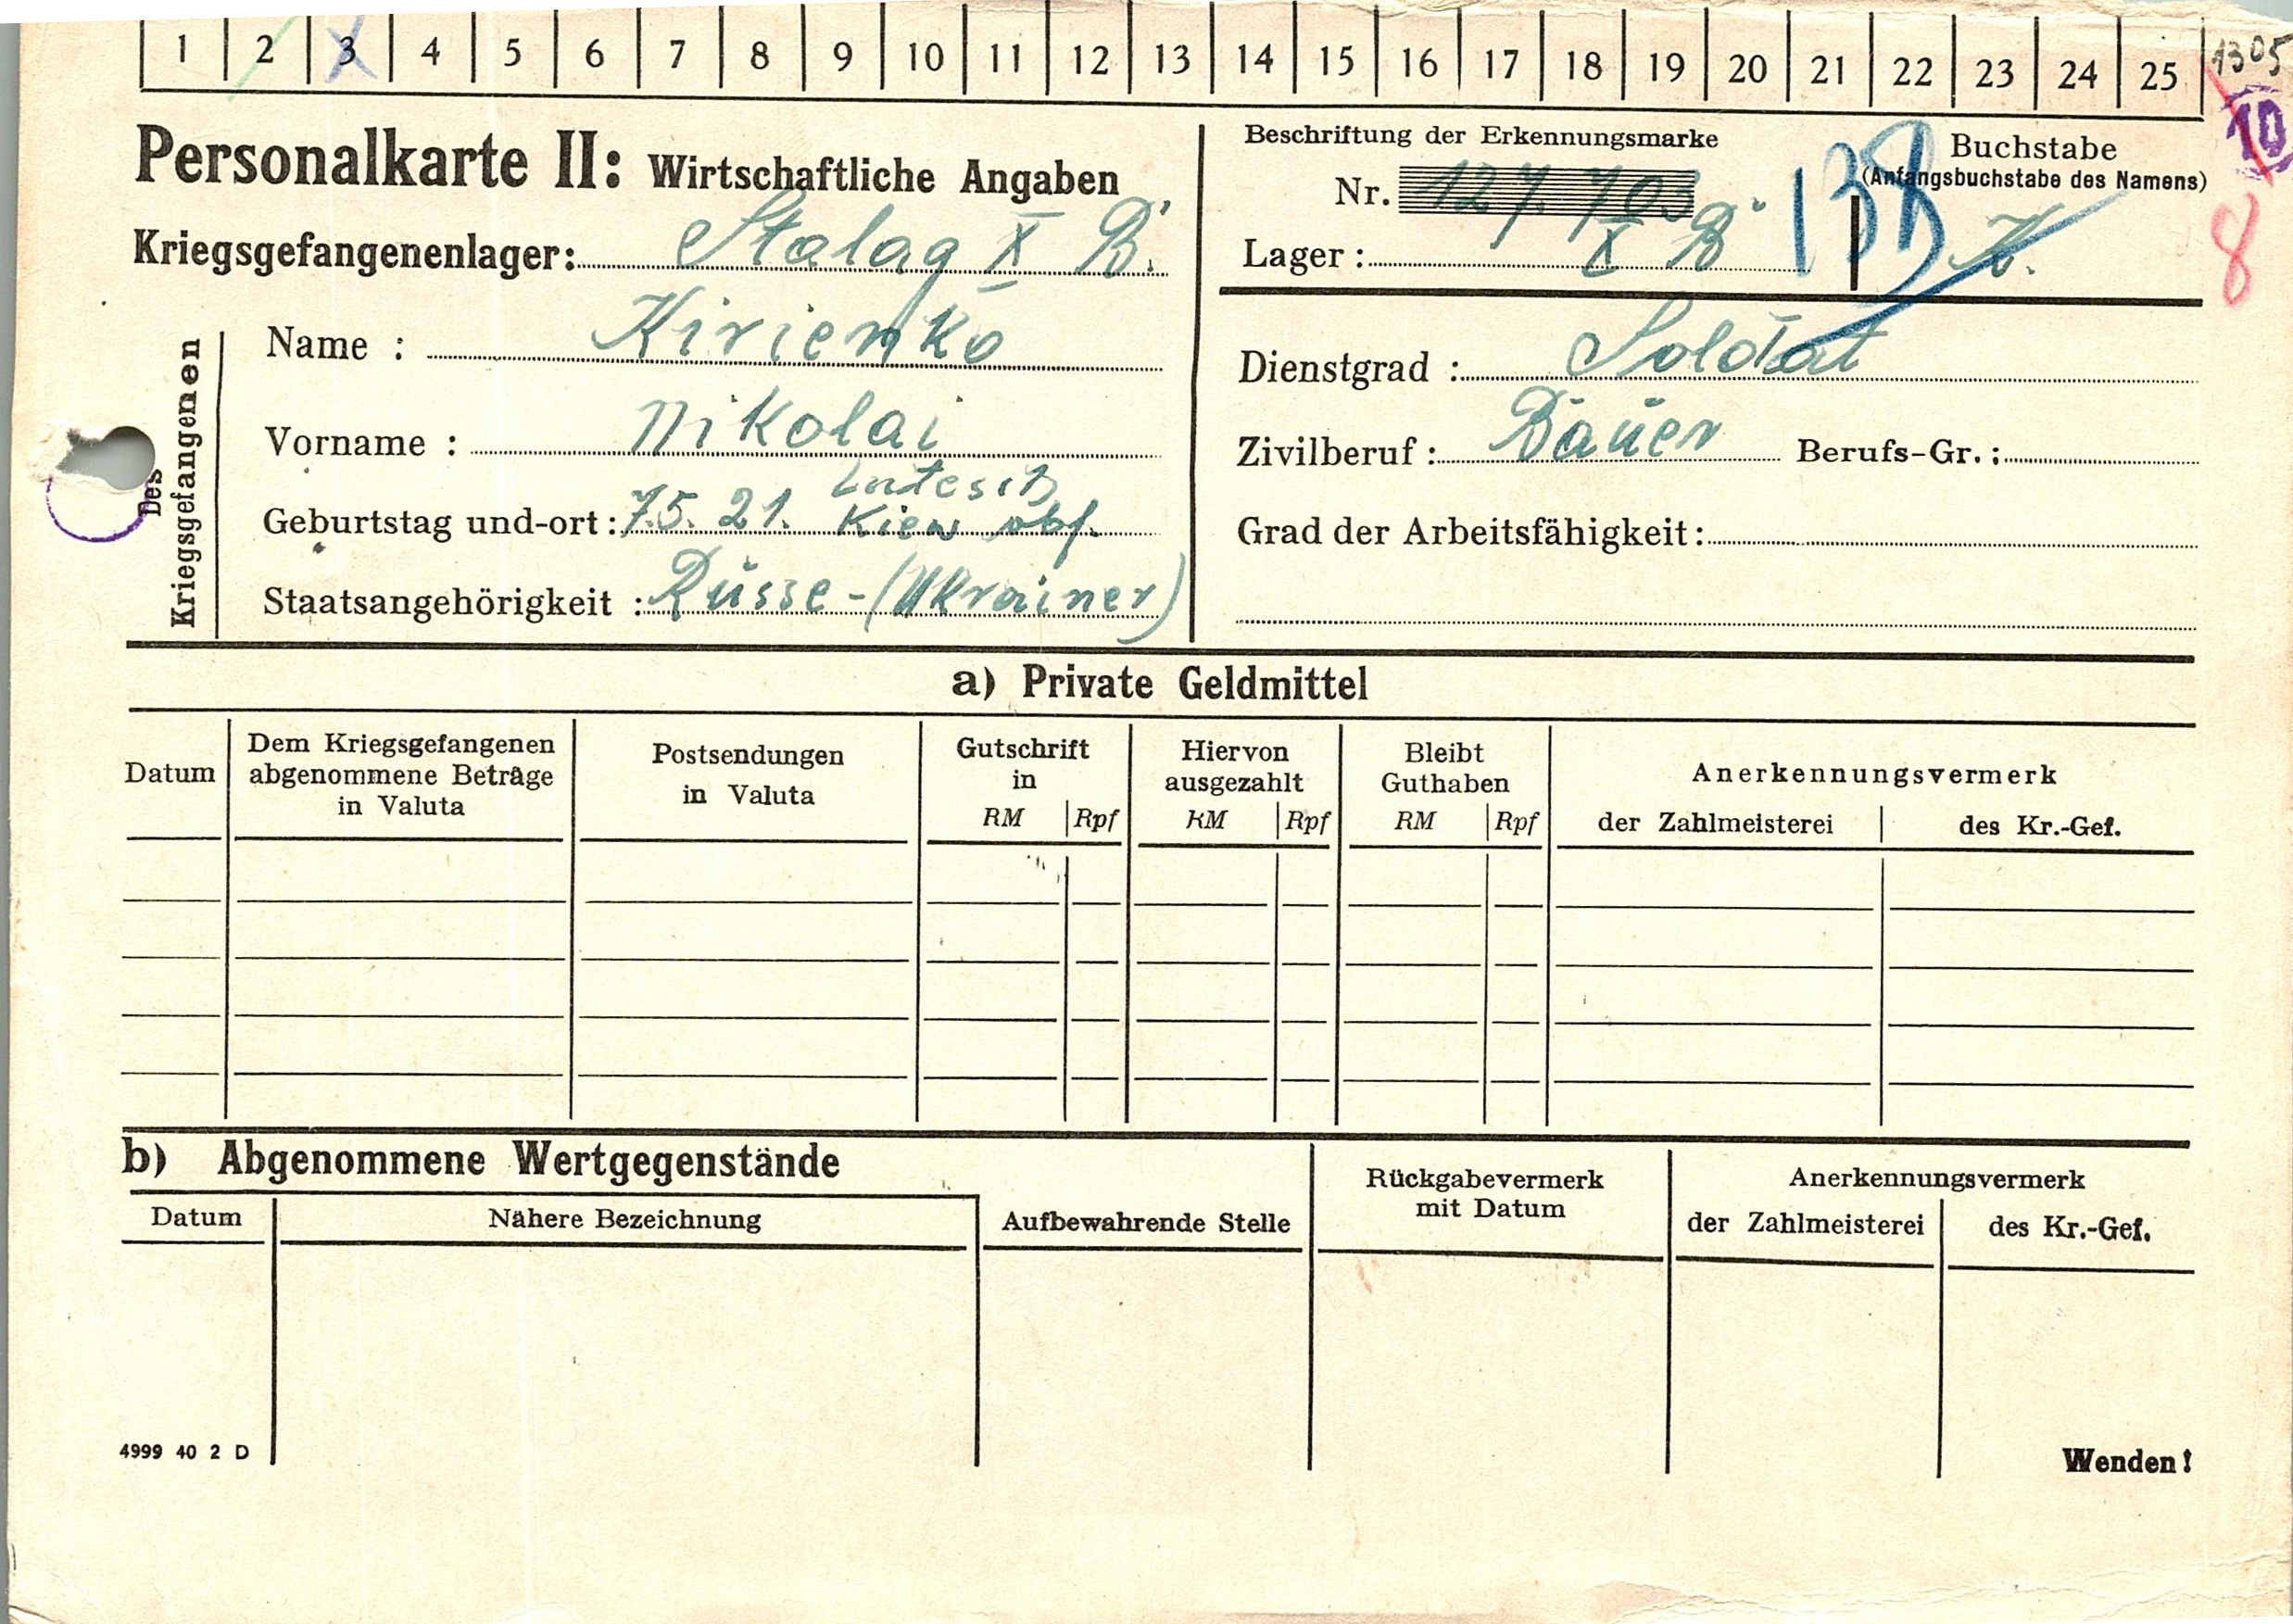 1 2 3 4 5 6 7 8 9 10 11 12 13 14 15 16 17 18 19 20 21 22 23 24 25
1305
10
Personalkarte II: Wirtschaftliche Angaben
Kriegsgefangenenlager: Stalag X B.
Beschriftung der Erkennungsmarke
Nr. 127 703
Lager: X B
Buchstabe
(Anfangsbuchstabe des Namens)
K.
8
Des Kriegsgefangenen
Name : Kirienko
Vorname : Nikolai
Geburtstag und-ort: 7.5. 21. Kiew obl.
Staatsangehörigkeit : Russe-(Ukrainer)
Dienstgrad : Soldat
Zivilberuf : Bauer Berufs-Gr.:
Grad der Arbeitsfähigkeit:
a) Private Geldmittel
Datum
Dem Kriegsgefangenen
abgenommene Beträge
in Valuta
Postsendungen
in Valuta
Gutschrift
in
RM Rpf
Hiervon
ausgezahlt
RM Rpf
Bleibt
Guthaben
RM Rpf
Anerkennungsvermerk
der Zahlmeisterei des Kr.-Gef.
b) Abgenommene Wertgegenstände
Datum
Nähere Bezeichnung
Aufbewahrende Stelle
Rückgabevermerk
mit Datum
Anerkennungsvermerk
der Zahlmeisterei des Kr.-Gef.
4999 40 2 D
Wenden!